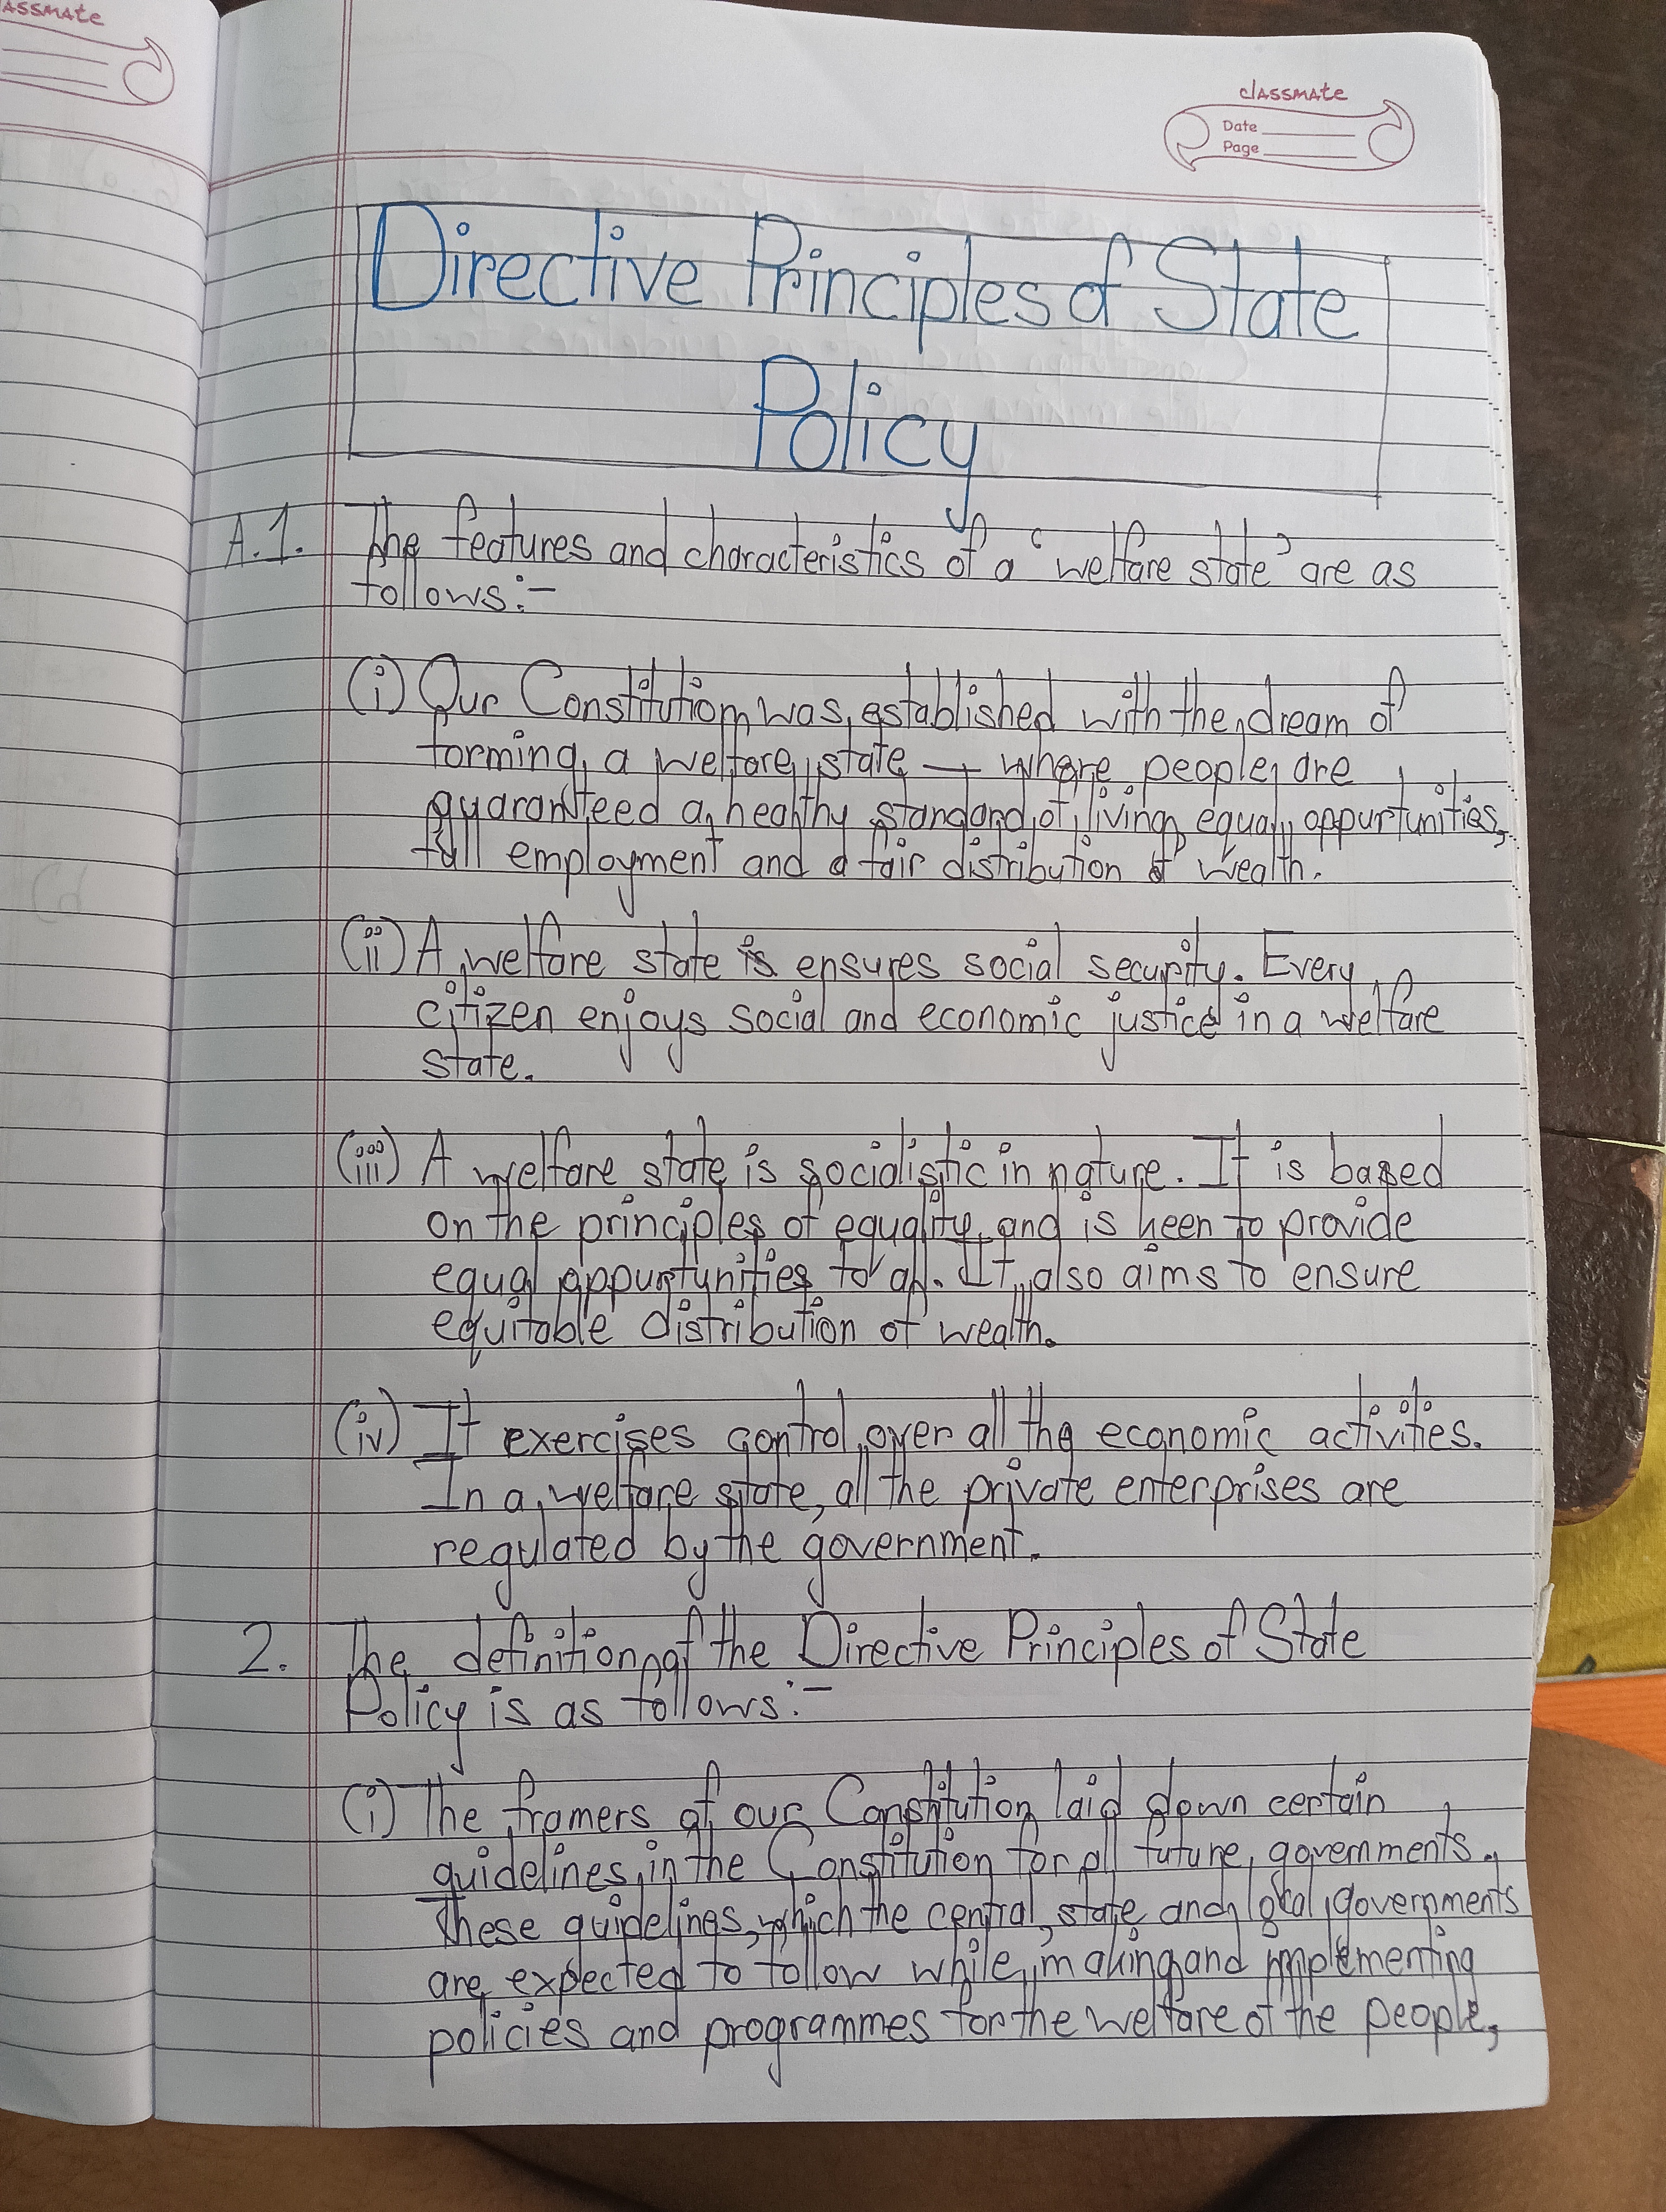 ASSMATE
classmate
Date
Page
Directive Principles of State
Policy
A.1. The features and characteristics of a 'welfare state' are as
follows:-
(i) Our Constitution was established with the dream of
forming a welfare state — where people are
guaranteed a healthy standard of living equal oppurtunities,
full employment and a fair distribution of wealth.
(ii) A welfare state is ensures social security. Every
citizen enjoys social and economic justice in a welfare
state.
(iii) A welfare state is socialistic in nature. It is based
on the principles of equality and is keen to provide
equal oppurtunities to all. It also aims to ensure
equitable distribution of wealth.
(iv) It exercises control over all the economic activities.
In a welfare state, all the private enterprises are
regulated by the government.
2. The definition of the Directive Principles of State
Policy is as follows:-
(i) The framers of our Constitution laid down certain
guidelines in the Constitution for all future governments.
These guidelines, which the central, state and local governments
are expected to follow while making and implementing
policies and programmes for the welfare of the people,